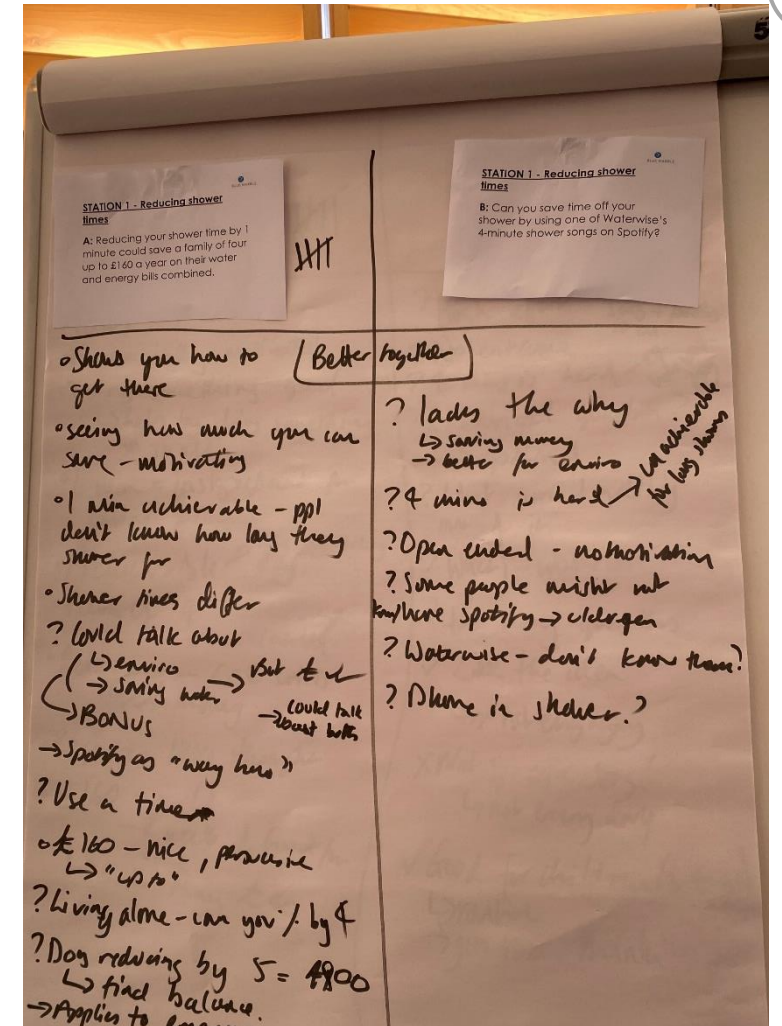 5
BLUE MARBLE
STATION 1 - Reducing shower
times
A: Reducing your shower time by 1
minute could save a family of four
up to £160 a year on their water
and energy bills combined.
BLUE MARBLE
STATION 1 - Reducing shower
times
B: Can you save time off your
shower by using one of Waterwise's
4-minute shower songs on Spotify?
Better together
• Shows you how to
get there
• seeing how much you can
save - motivating
• 1 min achievable - ppl
don't know how long they
shower for
• Shower times differ
? Could talk about
↳ enviro
→ saving water → But £ ✓
→ could talk
about both
↳ BONUS
→ Spotify as "way how"
? Use a timer
• £160 - nice, persuasive
↳ "up to"
? Living alone - can you % by 4
? Does reducing by 5 = £800
↳ find balance.
→ Applies to
? lacks the why
↳ saving money
→ better for enviro
? 4 mins is hard → unachievable
for long showers
? Open ended - no motivation
? Some people might not
know/have Spotify → older gen
? Waterwise - don't know them?
? Phone in shower?